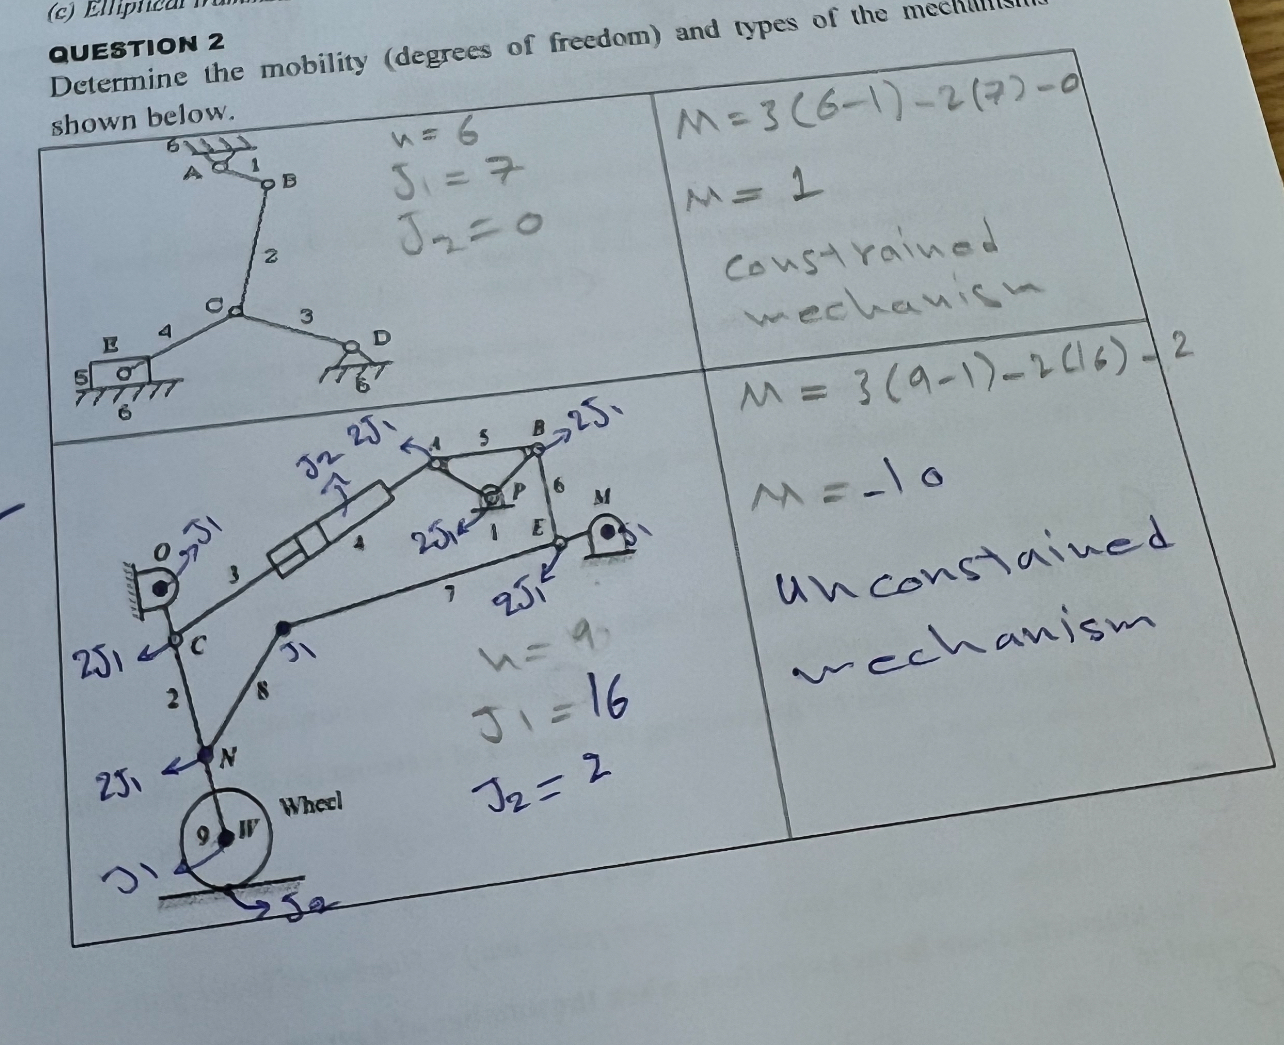 (c) Elliptical
QUESTION 2
Determine the mobility (degrees of freedom) and types of the mechanisms
shown below.
6
A 1
B
2
C
3
4
E
D
5
6
6
n = 6
J1 = 7
J2 = 0
M = 3(6-1)-2(7)-0
M = 1
constrained
mechanism
J2 2J1
A 5 B
2J1
P 6 M
2J1 1 E
J1
O
J1
3 4
7
2J1
2J1
C
J1
2 8
2J1
N
Wheel
9 W
J1
J2
n = 9
J1 = 16
J2 = 2
M = 3(9-1)-2(16)-2
M = -10
unconstained
mechanism